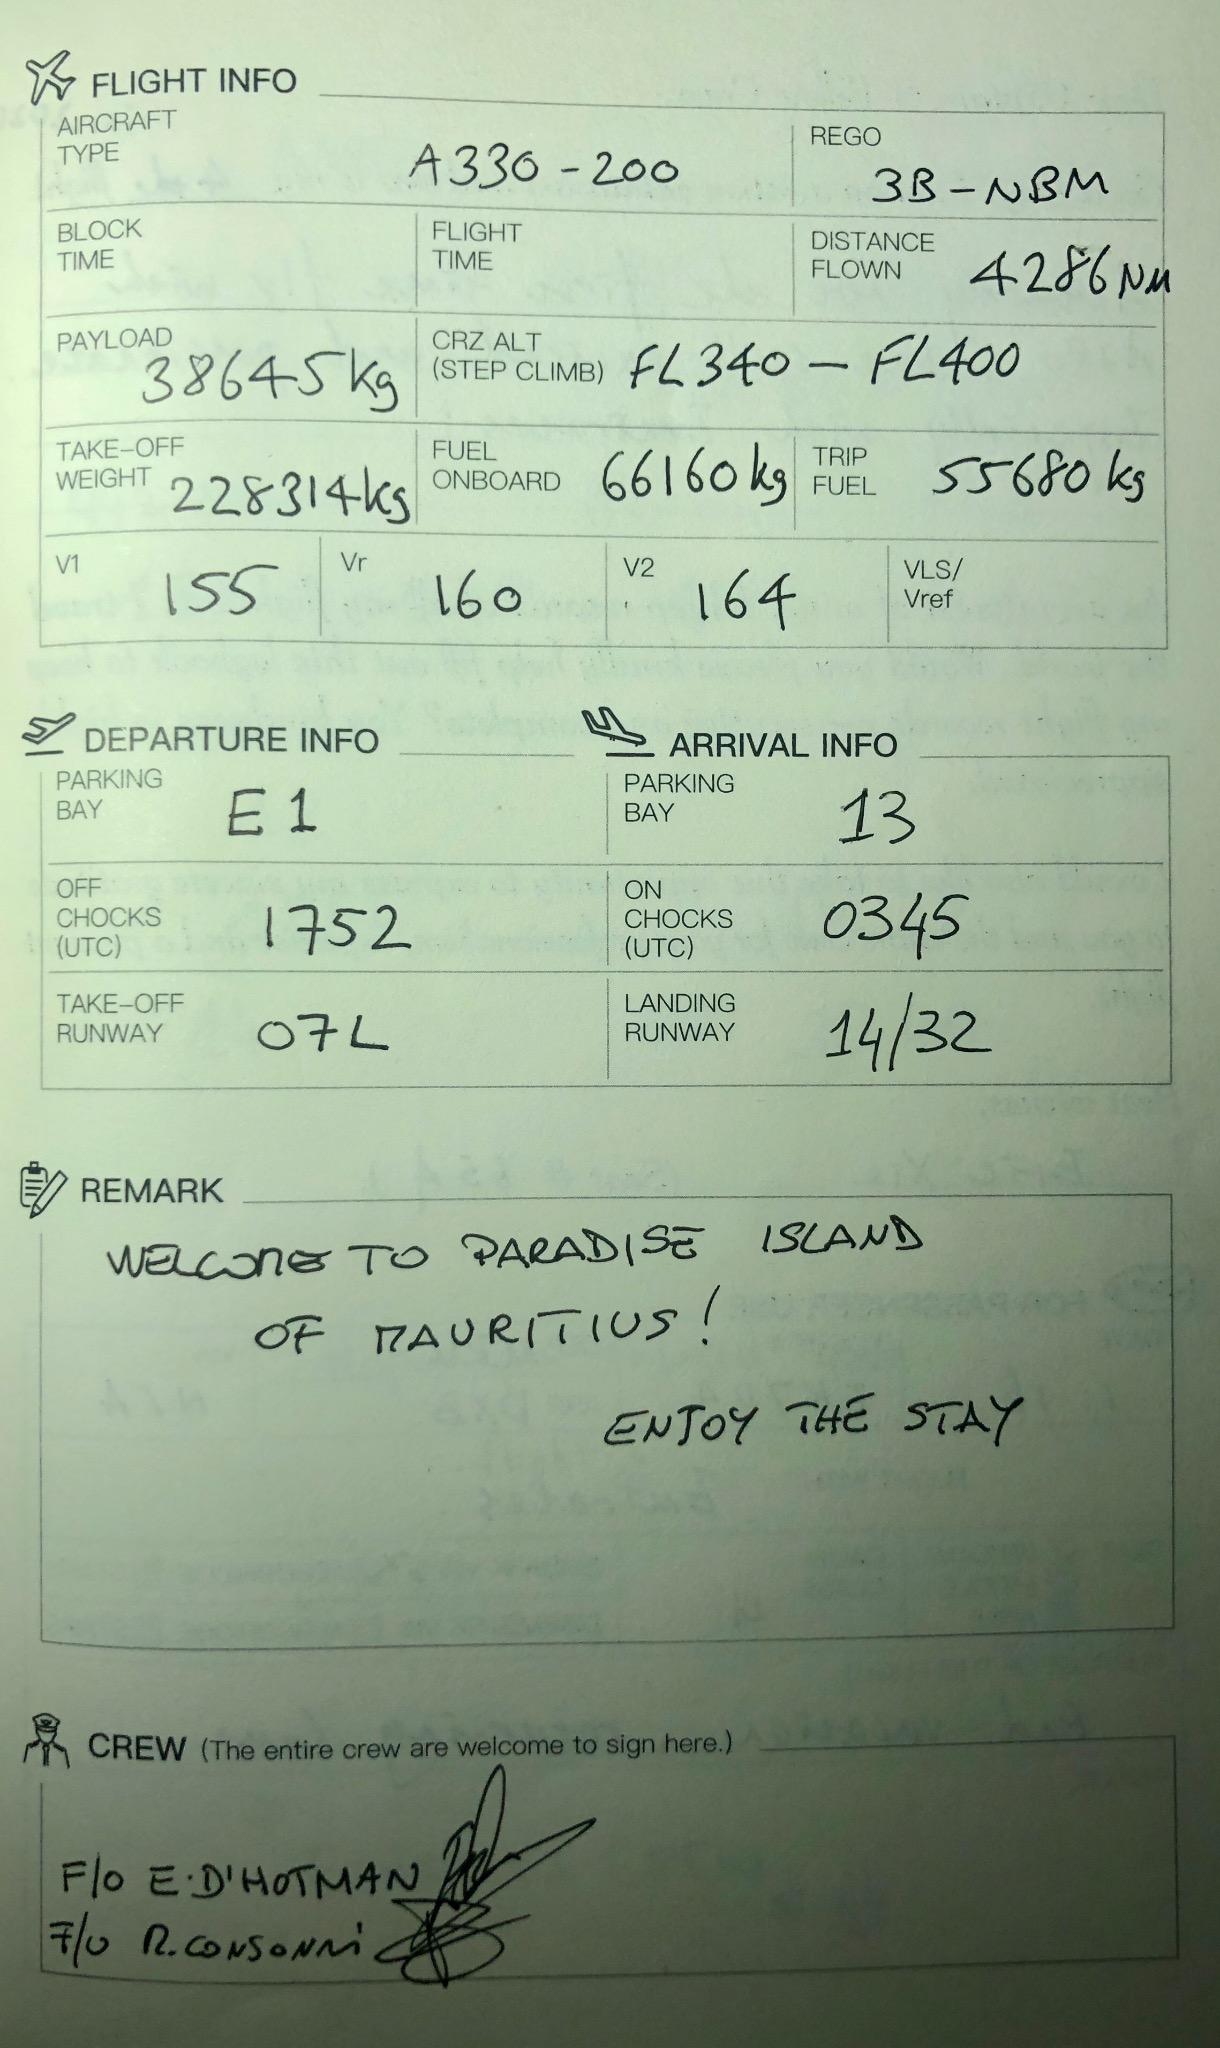 FLIGHT INFO
AIRCRAFT
TYPE
A330-200
REGO
3B-NBM
BLOCK
TIME
FLIGHT
TIME
DISTANCE
FLOWN
4286NM
PAYLOAD
38645kg
CRZ ALT
(STEP CLIMB)
FL340 - FL400
TAKE-OFF
WEIGHT
228314kg
FUEL
ONBOARD
66160kg
TRIP
FUEL
55680kg
V1
155
Vr
160
V2
164
VLS/
Vref
DEPARTURE INFO
PARKING
BAY
E1
OFF
CHOCKS
(UTC)
1752
TAKE-OFF
RUNWAY
07L
ARRIVAL INFO
PARKING
BAY
13
ON
CHOCKS
(UTC)
0345
LANDING
RUNWAY
14/32
REMARK
WELCOME TO PARADISE ISLAND
OF MAURITIUS!
ENJOY THE STAY
CREW (The entire crew are welcome to sign here.)
F/O E.D'HOTMAN
F/O R.CONSONNI